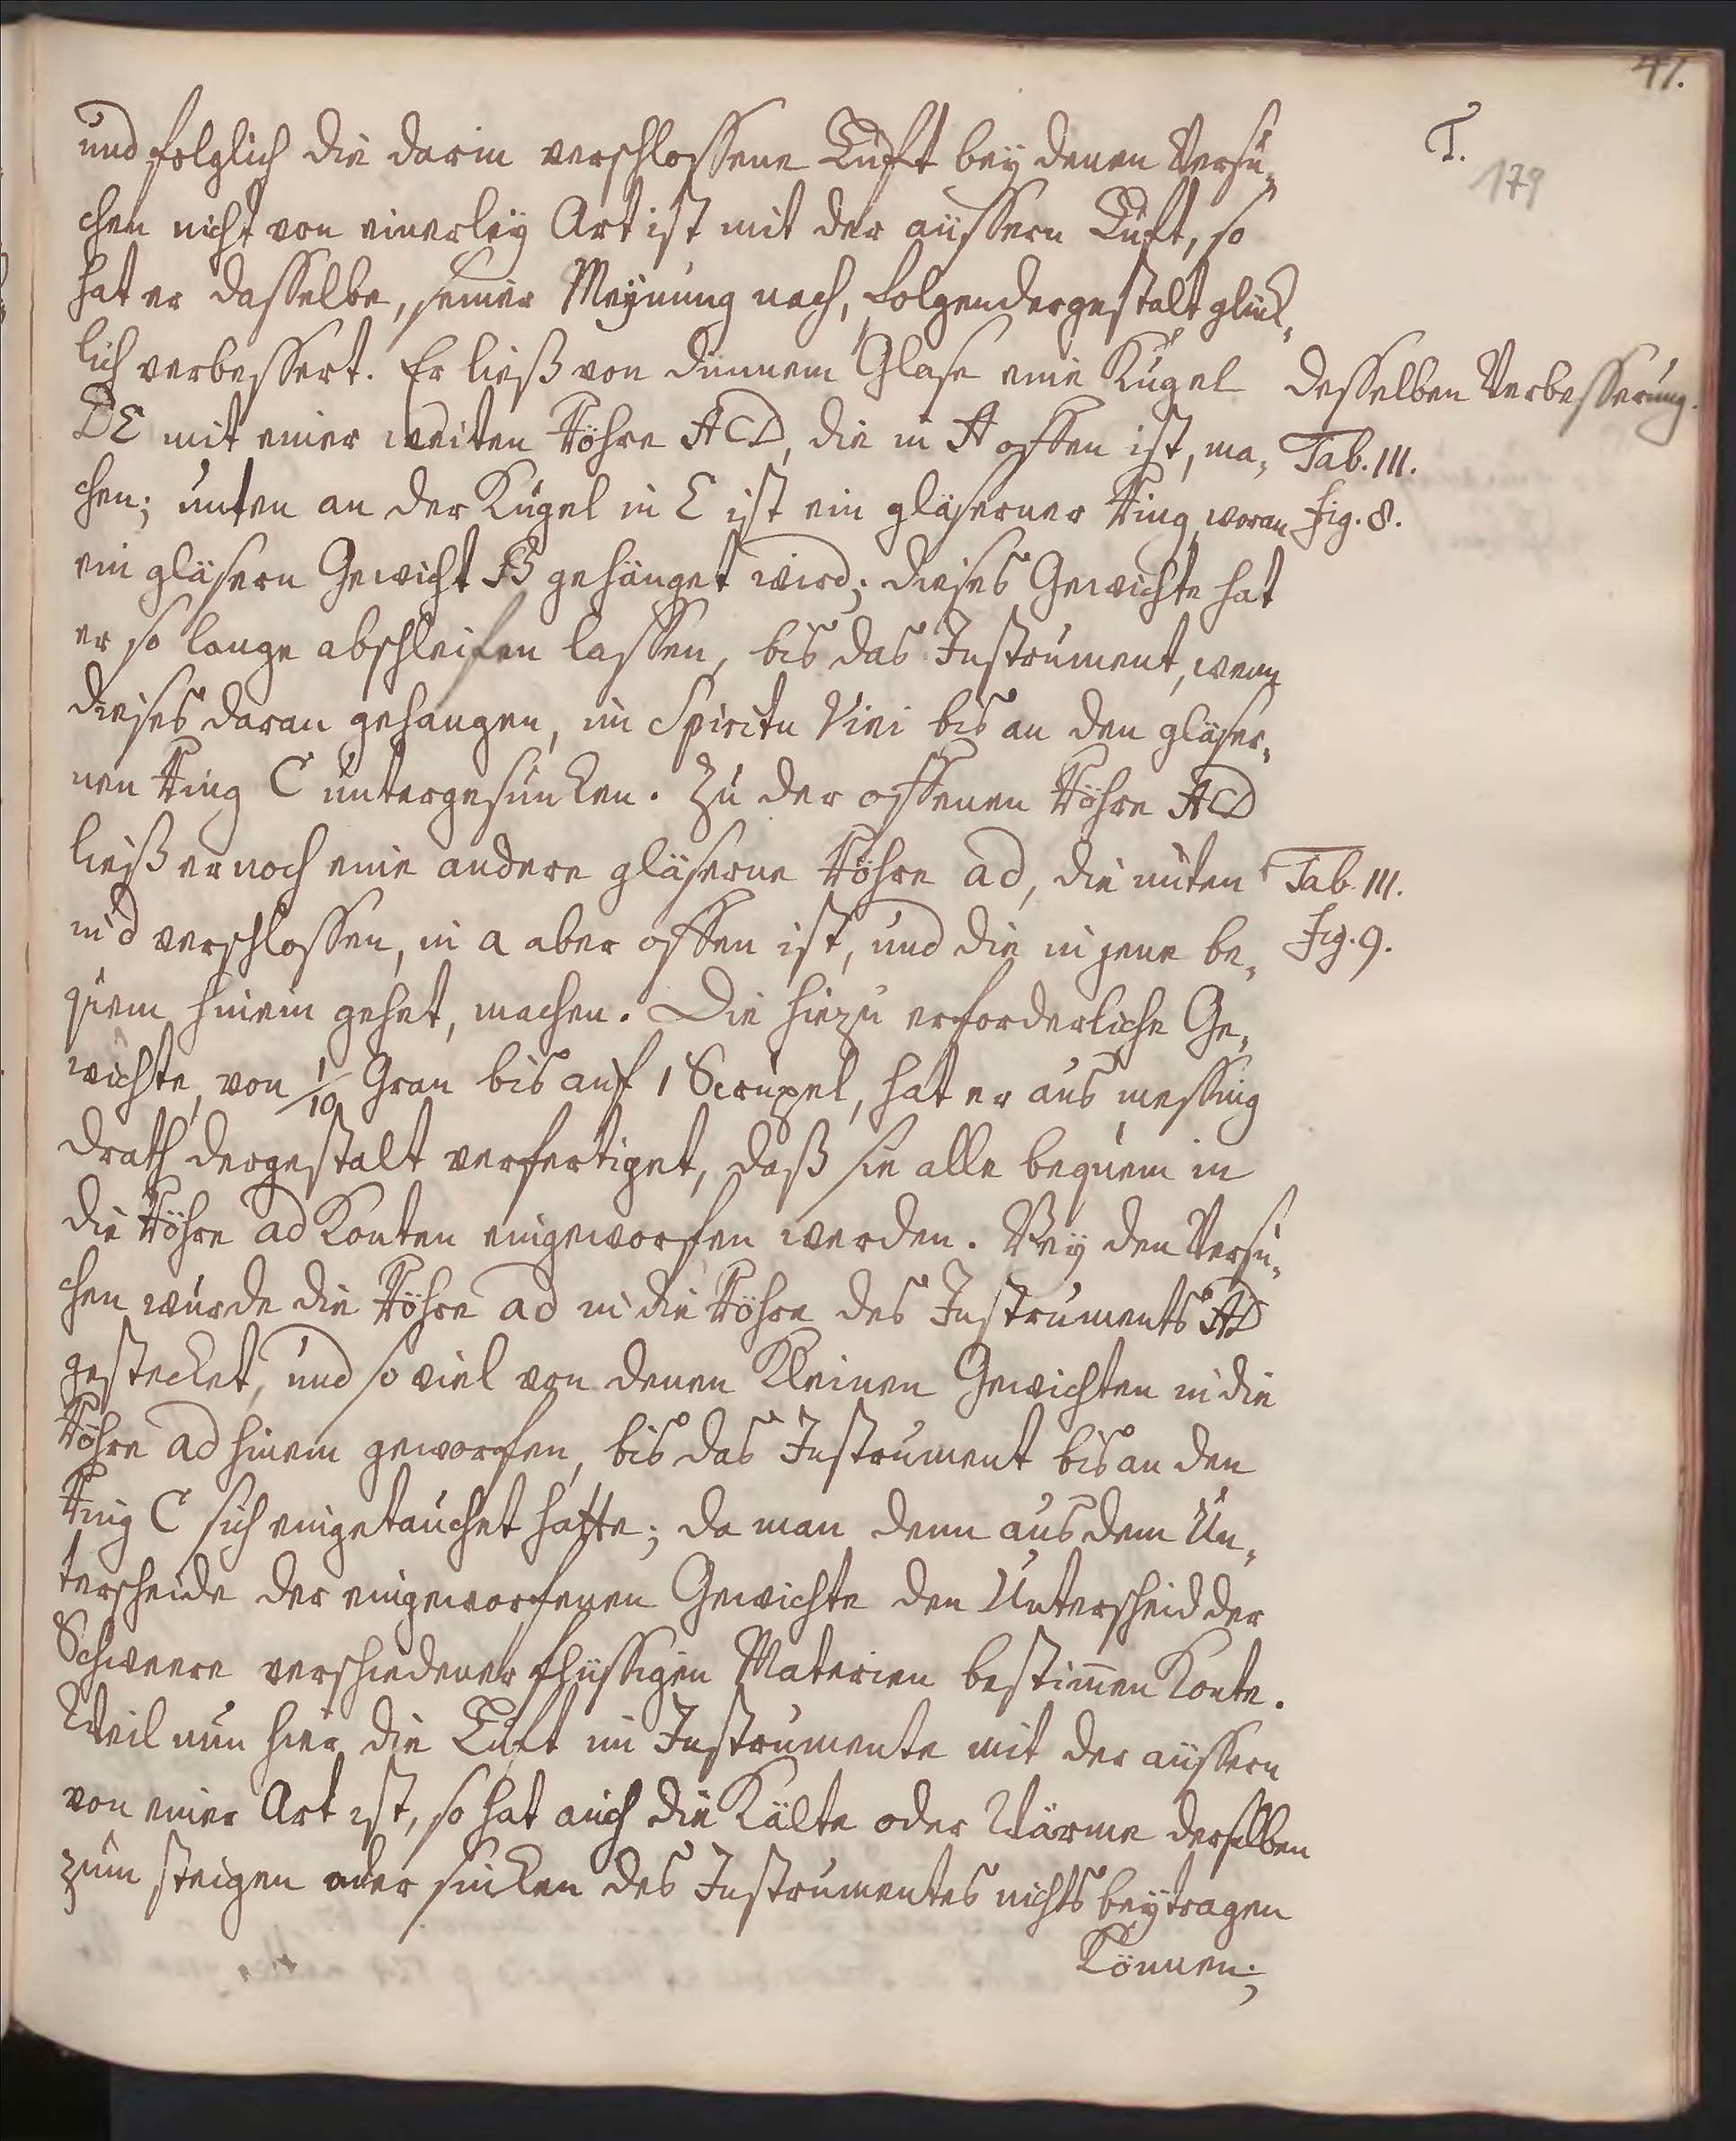 41.
T.
179
und folglich die darin verschlossene Luft bey denen Versu-
chen nicht von einerley Art ist mit der äussern Luft, so
hat er dasselbe, seiner Meynung nach, folgendergestalt glück-
lich verbessert. Er ließ von dünnem Glase eine Kugel
desselben Verbesserung.
DE mit einer weiten Röhre ACD, die in A offen ist, ma-
Tab. III.
chen; unten an der Kugel in E ist ein gläserner Ring, woran
Fig. 8.
ein gläsern Gewicht B gehänget wird; dieses Gewichte hat
er so lange abschleifen lassen, bis das Instrument, wenn
dieses daran gehangen, in Spiritu Vini bis an den gläser-
nen Ring C untergesuncken. Zu der offenen Röhre ACD
ließ er noch eine andere gläserne Röhre ad, die unten
Tab. III.
in d verschlossen, in a aber offen ist, und die in jene be-
Fig. 9.
quem hinein gehet, machen. Die hiezu erforderliche Ge-
wichte, von 1/10 Gran bis auf 1 Scrupel, hat er aus messing
drath dergestalt verfertiget, daß sie alle bequem in
die Röhre ad konten eingeworfen werden. Bey den Versu-
chen wurde die Röhre ad in die Röhre des Instruments AD
gestecket, und so viel von denen kleinen Gewichten in die
Röhre ad hinein geworfen, bis das Instrument bis an den
Ring C sich eingetauchet hatte; da man denn aus dem Un-
terscheide der eingeworfenen Gewichte den Unterscheid der
Schweere verschiedener flüssigen Materien bestim̄en konte.
Weil nun hier die Luft im Instrumente mit der äussern
von einer Art ist, so hat auch die Kälte oder Wärme derselben
zum steigen oder sincken des Instrumentes nichts beytragen
können;